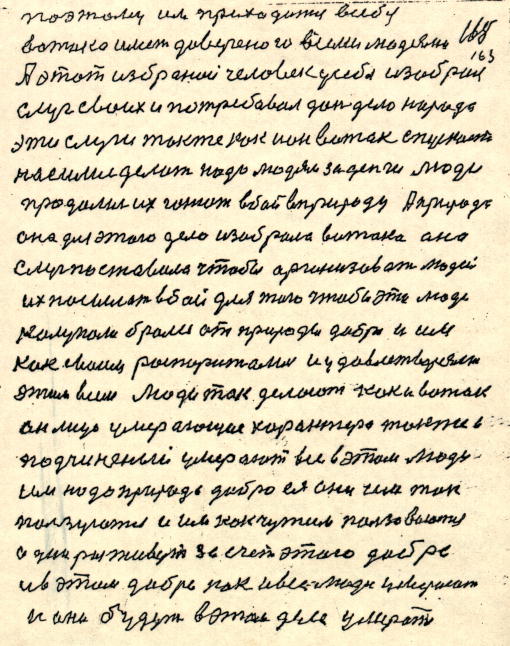 поэтому им приходится в себу
ватака имет доверено го всеми людями 168
А этот избраной человек у себя избрал 163
слуг своих и потребавал дан дело народа
эти слуги такте как и он ватак спускаете
насилие делат надо людям за денги люди
продались их гонют в бой в природу А природа
она для этого дело избрала ватака она
слуг поставила чтобы арганизоват людей
их посылат в бой для того чтобы эти люди
калупали брали от природы добра и им
как своим распоритались и удавлетворяли
этим всем люди так делают как и ватак
он лицо умерающие характера также и
подчиненый умерают все в этом люди
им надо природа добро ея они им так
ползуются и им как чужим ползоваются
один раз живут за счет этого добра
и в этом добре как и все люди умерают
и они будут в этом деле умерать